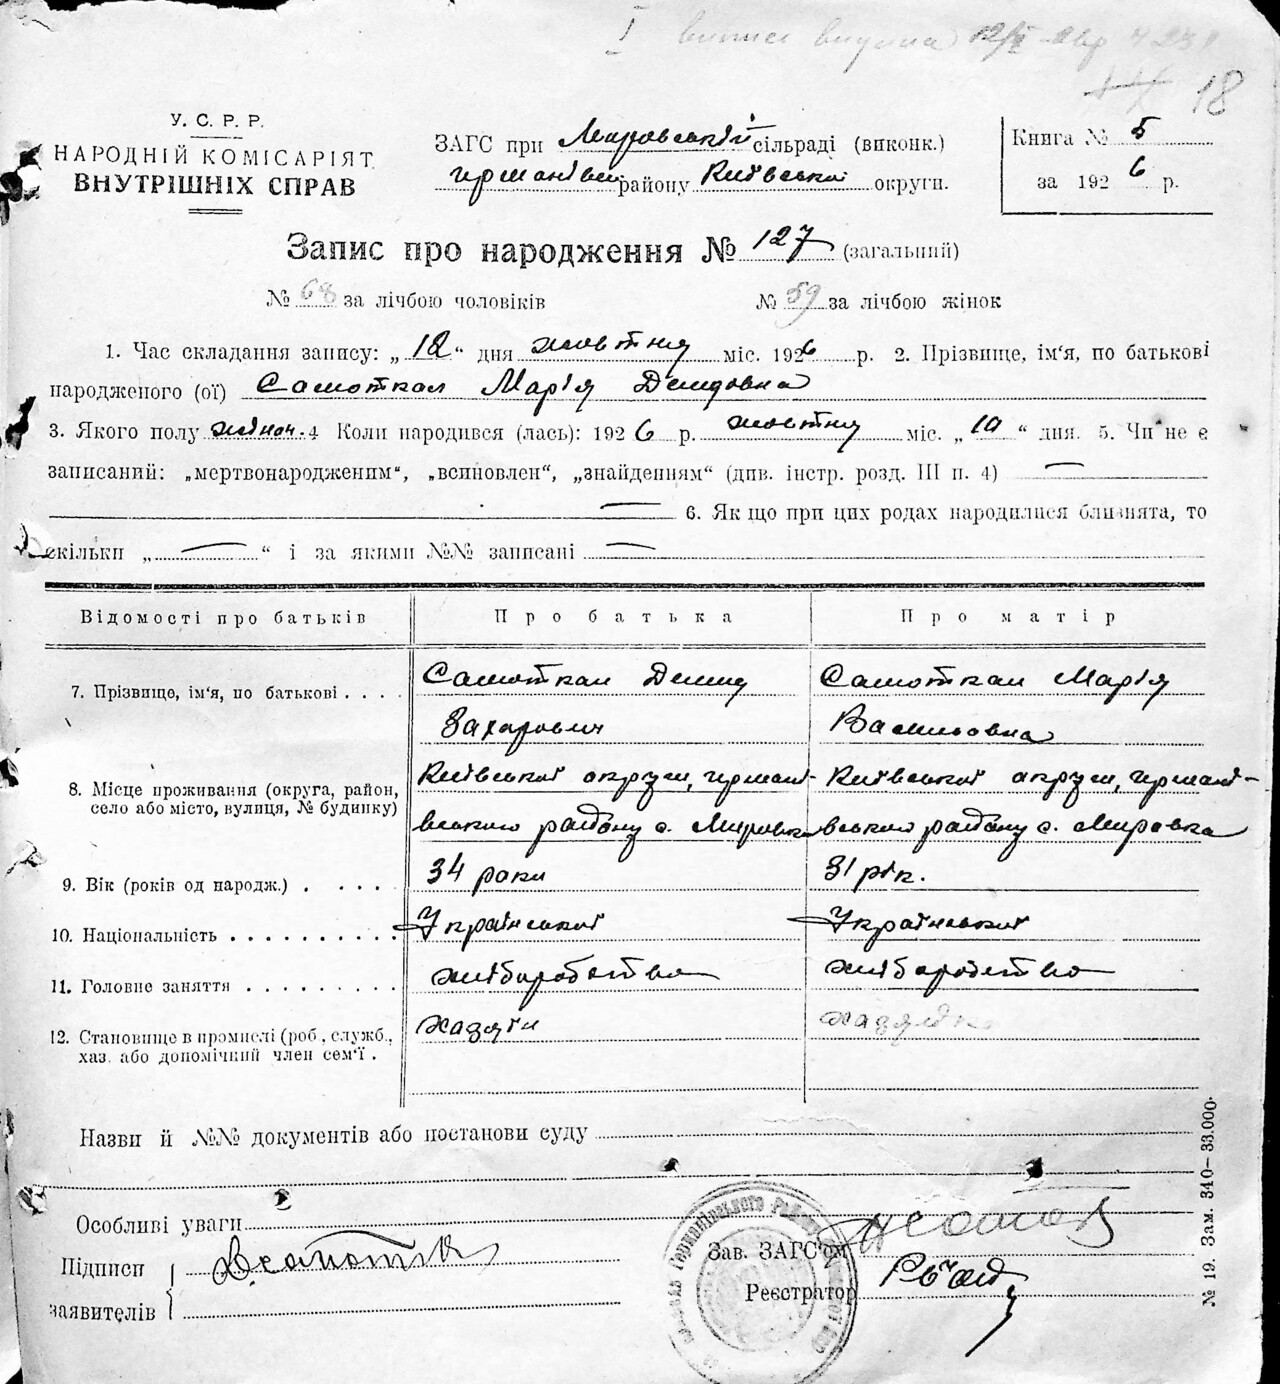 І випис видана
18
У. С. Р. Р.
НАРОДНІЙ КОМІСАРІЯТ
ВНУТРІШНІХ СПРАВ
ЗАГС при Мировській сільраді (виконк.)
району Київської округи.
Книга № 5
за 1926 р.
Запис про народження № 127 (загальний)
№ 68 за лічбою чоловіків № 59 за лічбою жінок
1. Час складання запису: „12“ дня жовтня міс. 1926 р. 2. Прізвище, ім‘я, по батькові
народженого (ої) Самоткал Марія Демидовна
3. Якого полу жіноч. 4 Коли народився (лась): 1926 р. жовтня міс. „10“ дня. 5. Чи не є
записаний: „мертвонародженим“, „всиновлен“, „знайденням“ (див. інстр. розд. III п. 4) —
— 6. Як що при цих родах народилися близнята, то
скільки „—“ і за якими №№ записані —
Відомості про батьків Про батька Про матір
7. Прізвище, ім‘я, по батькові . . . . Самоткал Демид Самоткал Марія
Захарович Васильовна
8. Місце проживання (округа, район, Київської округи, герматі- Київської округи, герматі-
село або місто, вулиця, № будинку) вського району с. Мировка вського району с. Мировка
9. Вік (років од народж.) . . . . . 34 роки 31 рік.
10. Національність . . . . . . . . . . Української Української
11. Головне заняття . . . . . . . . . хліборобство хліборобство
12. Становище в промислі (роб, служб., хазяїн хазяйка
хаз. або допомічний член сем‘ї .
Назви й №№ документів або постанови суду
Особливі уваги
Підписи
заявителів
Зав. ЗАГС‘ом
Реєстратор
№ 19. Зам. 340—33.000.